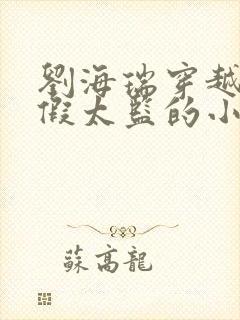 劉海瑞穿越
假太監的小
蘇高龍